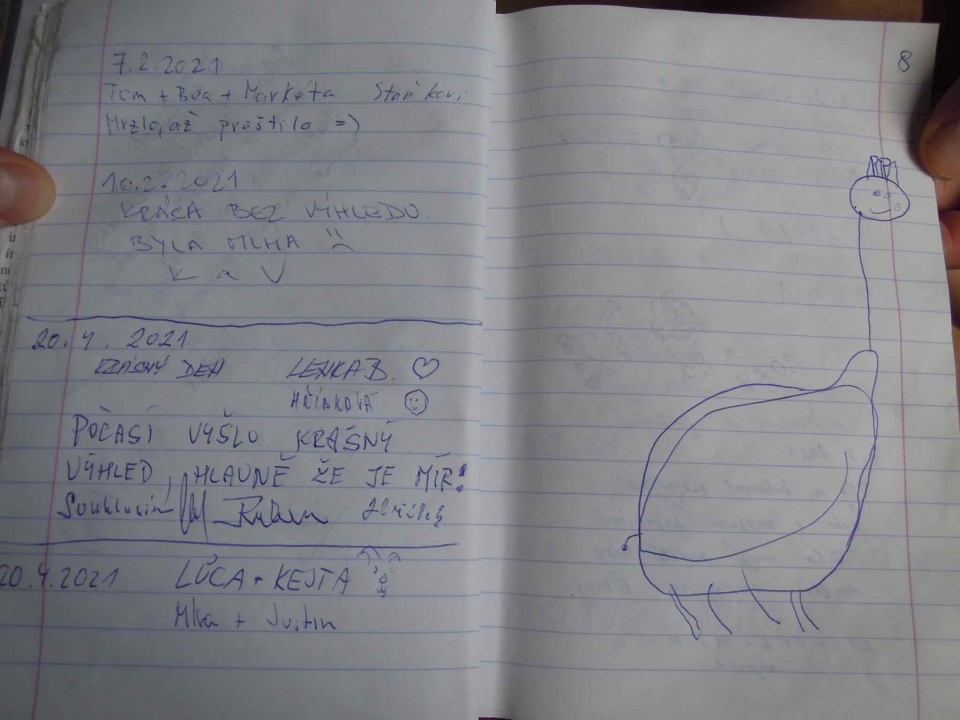 7.2.2021
Tom + Bea + Markéta
Mrzlo, až praštilo =)
10.2.2021
KRÁSA BEZ VÝHLEDU
BYLA MLHA
K a V
20.4.2021
KRÁSNÝ DEN LENKA B. ♡
POČASÍ VYŠLO KRÁSNÝ
VÝHLED, HLAVNĚ ŽE JE MÍR!
Souhlasím
20.4.2021 LÚCA + KEJTA
+ Justin
8